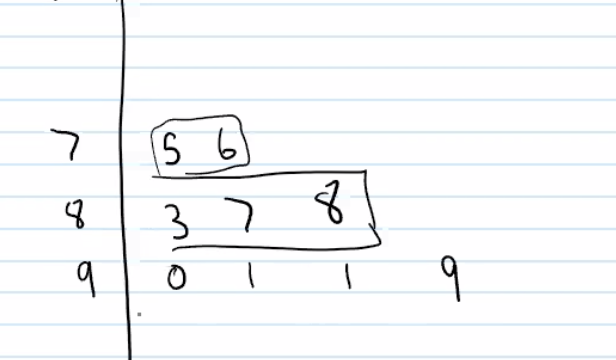 7 | 5 6
8 | 3 7 8
9 | 0 1 1 9